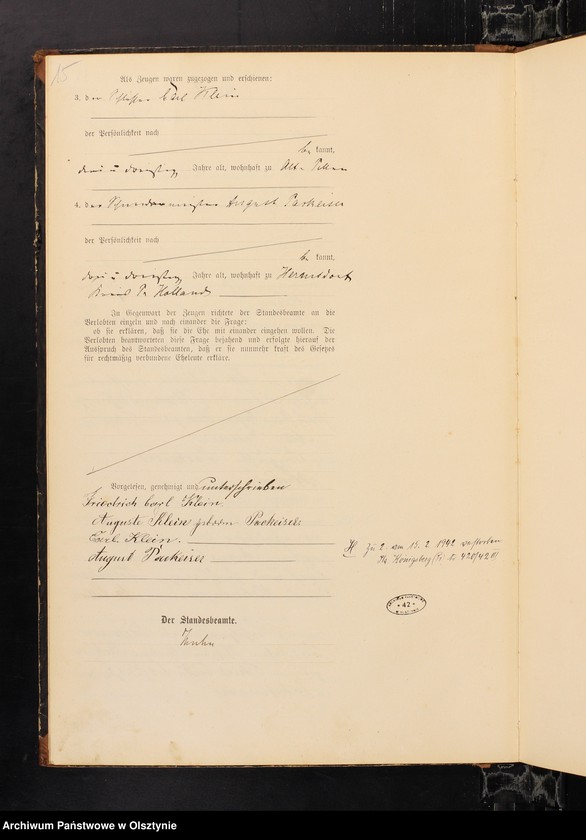 15
Als Zeugen waren zugezogen und erschienen:
3. der Schlosser Carl Klein
der Persönlichkeit nach
be kannt,
drei u dreißig Jahre alt, wohnhaft zu Alt-Pillau
4. der August Packeiser
der Persönlichkeit nach
be kannt,
drei u dreißig Jahre alt, wohnhaft zu Hermsdorf
Kreis Pr Holland
In Gegenwart der Zeugen richtete der Standesbeamte an die
Verlobten einzeln und nach einander die Frage:
ob sie erklären, daß sie die Ehe mit einander eingehen wollen. Die
Verlobten beantworteten diese Frage bejahend und erfolgte hierauf der
Ausspruch des Standesbeamten, daß er sie nunmehr kraft des Gesetzes
für rechtmäßig verbundene Eheleute erkläre.
Vorgelesen, genehmigt und unterschrieben
Friedrich Carl Klein.
Auguste Klein geboren Packeiser
Carl Klein.
August Packeiser
H zu 2 am 13. 2. 1942 verstorben
Königsberg (Pr)
42
Der Standesbeamte.
Archiwum Państwowe w Olsztynie